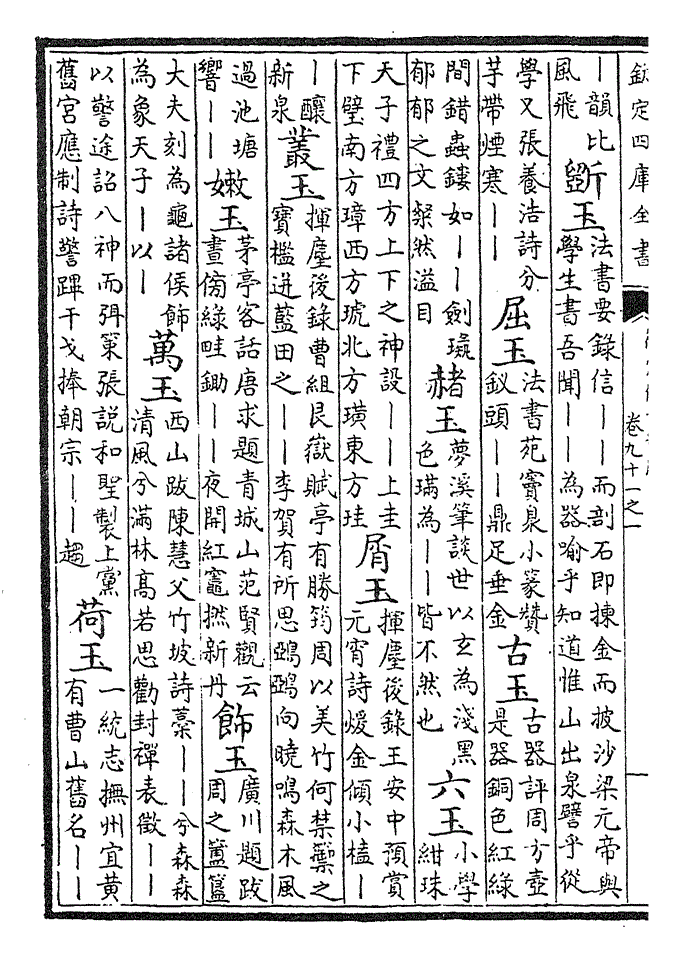 欽定四庫全書
卷九十一之一
｜韻比風飛斵玉法書要錄信｜｜而剖石即揀金而披沙梁元帝與學生書吾聞｜｜為器喻乎知道惟山出泉譬乎從
學又張養浩詩分芋帶煙寒｜｜屈玉法書苑竇臮小篆贊釵頭｜｜鼎足垂金古玉古器評周方壺是器銅色紅緑
間錯蟲鏤如｜｜劍璏郁郁之文粲然溢目赭玉夢溪筆談世以玄為淺黑色璊為｜｜皆不然也六玉小學紺珠
天子禮四方上下之神設｜｜上圭下璧南方璋西方琥北方璜東方珪屑玉揮麈後錄王安中預賞元宵詩煖金傾小榼｜
｜釀新泉叢玉揮麈後錄曹組艮嶽賦亭有勝筠周以美竹何禁籞之寶檻迸藍田之｜｜李賀有所思鵶鵶向曉鳴森木風
過池塘響｜｜嫩玉茅亭客話唐求題青城山范賢觀云晝傍緑畦鋤｜｜夜開紅竈撚新丹飾玉廣川題跋周之簠簋
大夫刻為龜諸侯飾為象天子｜以｜萬玉西山跋陳慧父竹坡詩藁｜｜兮森森清風兮滿林高若思勸封禪表徵｜｜
以警途詔八神而弭䇿張説和聖製上黨舊宮應制詩警蹕干戈捧朝宗｜｜趨荷玉一統志撫州宜黄有曹山舊名｜｜